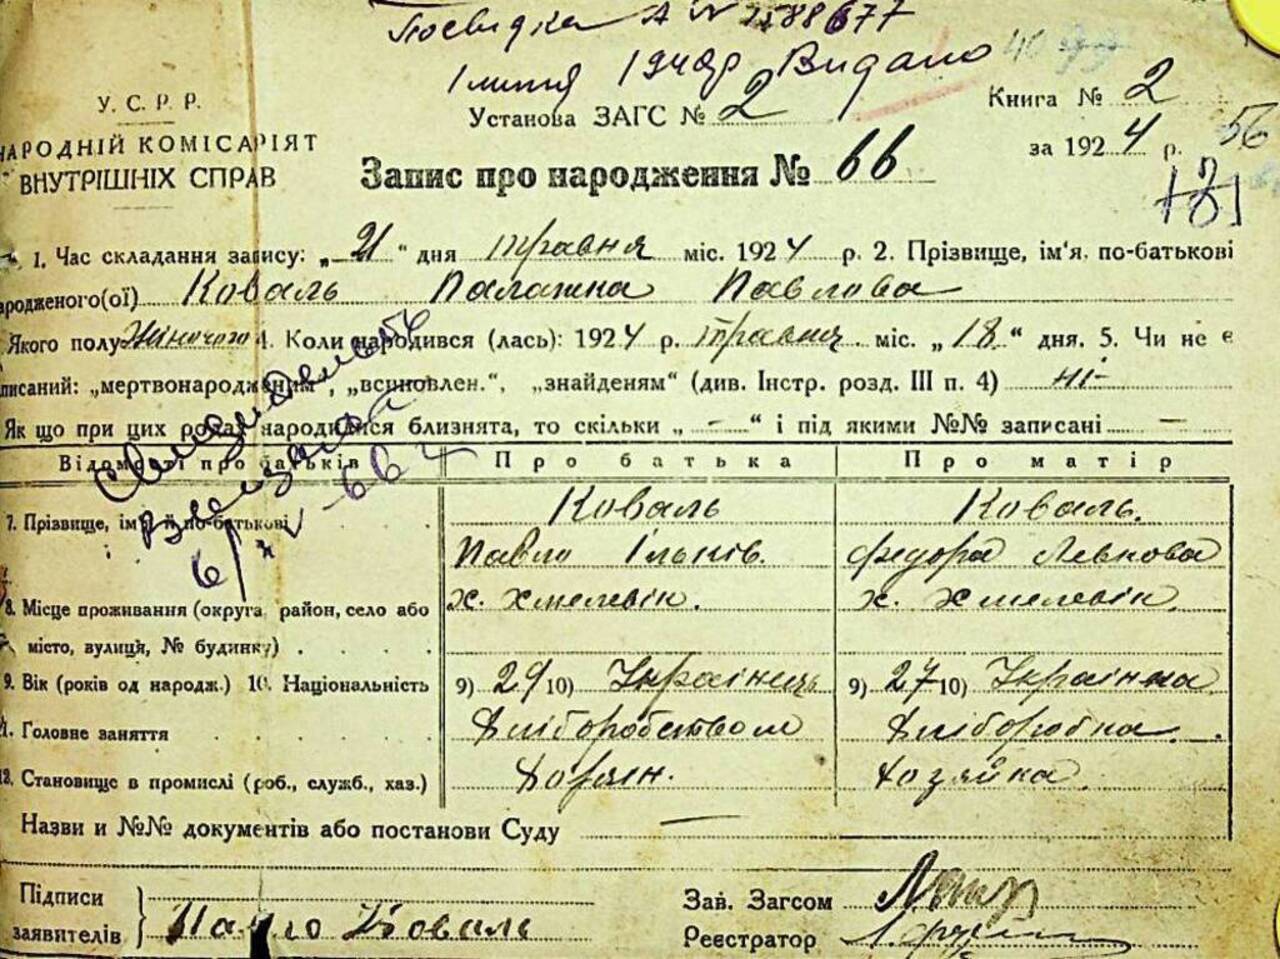 Посвидка А № 1588677
1 липня 1948р Видано
У. С. Р. Р.
НАРОДНІЙ КОМІСАРІЯТ
ВНУТРІШНІХ СПРАВ
Установа ЗАГС № 2
Книга № 2
за 1924 р. 56
Запис про народження № 66
1. Час складання запису: „21“ дня травня міс. 1924 р. 2. Прізвище, ім'я, по-батькові
народженого(ої) Коваль Палажка Павлова
Якого полу Жіночого 4. Коли народився (лась): 1924 р. травня міс. „18“ дня. 5. Чи не є
записаний: „мертвонародженим“, „всиновлен.“, „знайденям“ (див. Інстр. розд. III п. 4) ні
Як що при цих родах народилися близнята, то скільки „ — “ і під якими №№ записані —
Відомості про батьків Про батька Про матір
7. Прізвище, ім'я й по-батькові Коваль Коваль.
Павло Ільків. Федора Левкова
8. Місце проживання (округа, район, село або х. Хмелевік. х. Хмелевік.
місто, вулиця, № будинку)
9. Вік (років од народж.) 10. Національність 9) 29 10) Українець 9) 27 10) Українка
11. Головне заняття Хліборобством Хліборобка
12. Становище в промислі (роб., служб., хаз.) Хозяїн. Хозяйка
Назви и №№ документів або постанови Суду —
Підписи
заявителів Павло Коваль
Зав. Загсом
Реєстратор